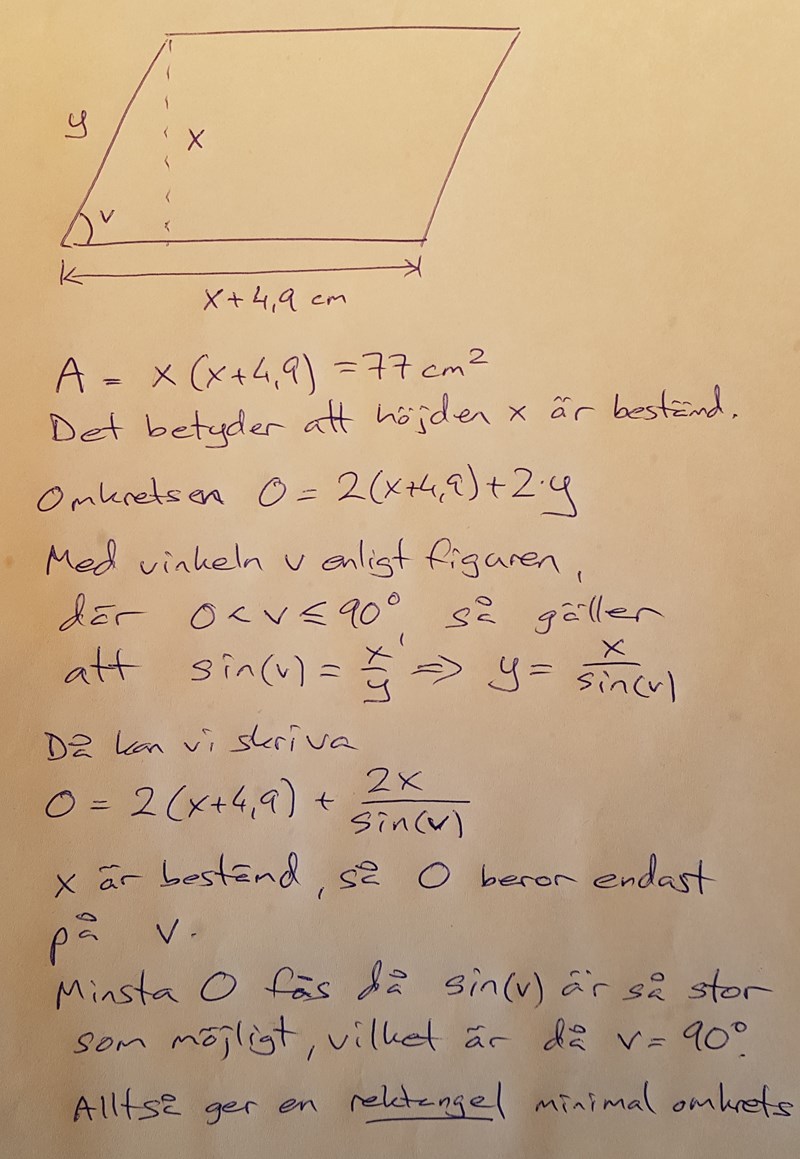 y
x
v
x+4,9 cm
A = x(x+4,9) = 77 cm²
Det betyder att höjden x är bestämd.
Omkretsen O = 2(x+4,9)+2·y
Med vinkeln v enligt figuren,
där 0 < v ≤ 90°, så gäller
att sin(v) = x/y => y = x/sin(v)
Då kan vi skriva
O = 2(x+4,9) + 2x/sin(v)
x är bestämd, så O beror endast
på v.
Minsta O fås då sin(v) är så stor
som möjligt, vilket är då v = 90°.
Alltså ger en rektangel minimal omkrets